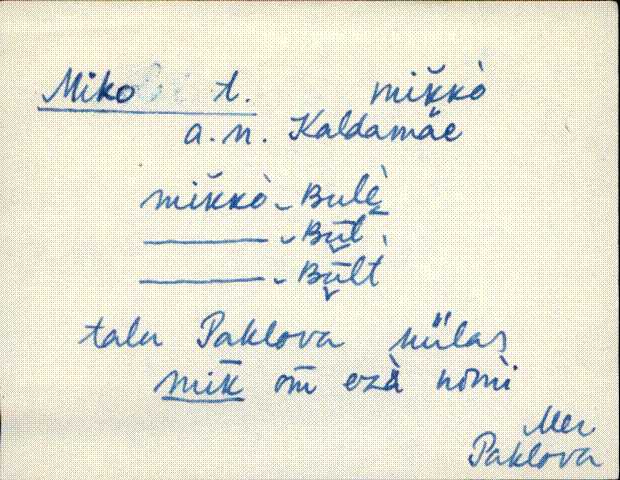 Miko t. mik̆kò
a.n. Kaldamäe
mik̆kò - Bulè
——— - Būl
——— - Būlt
talu Paklova küläs
mīk om ezà nömì
Mer
Paklova